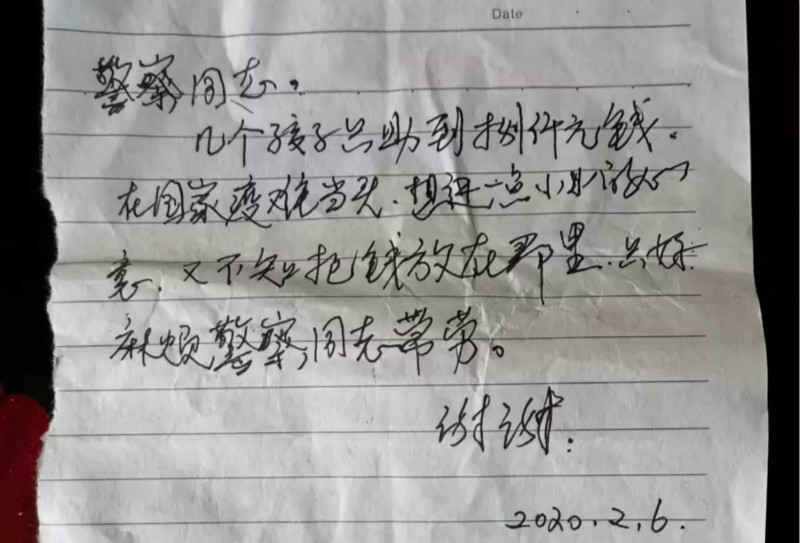 Date
警察同志。
几个孩子只助到捌仟元钱。
在国家疫难当头.想进一点小小的心
意.又不知把钱放在那里.只好
麻烦警察同志带劳。
谢谢.
2020.2.6.